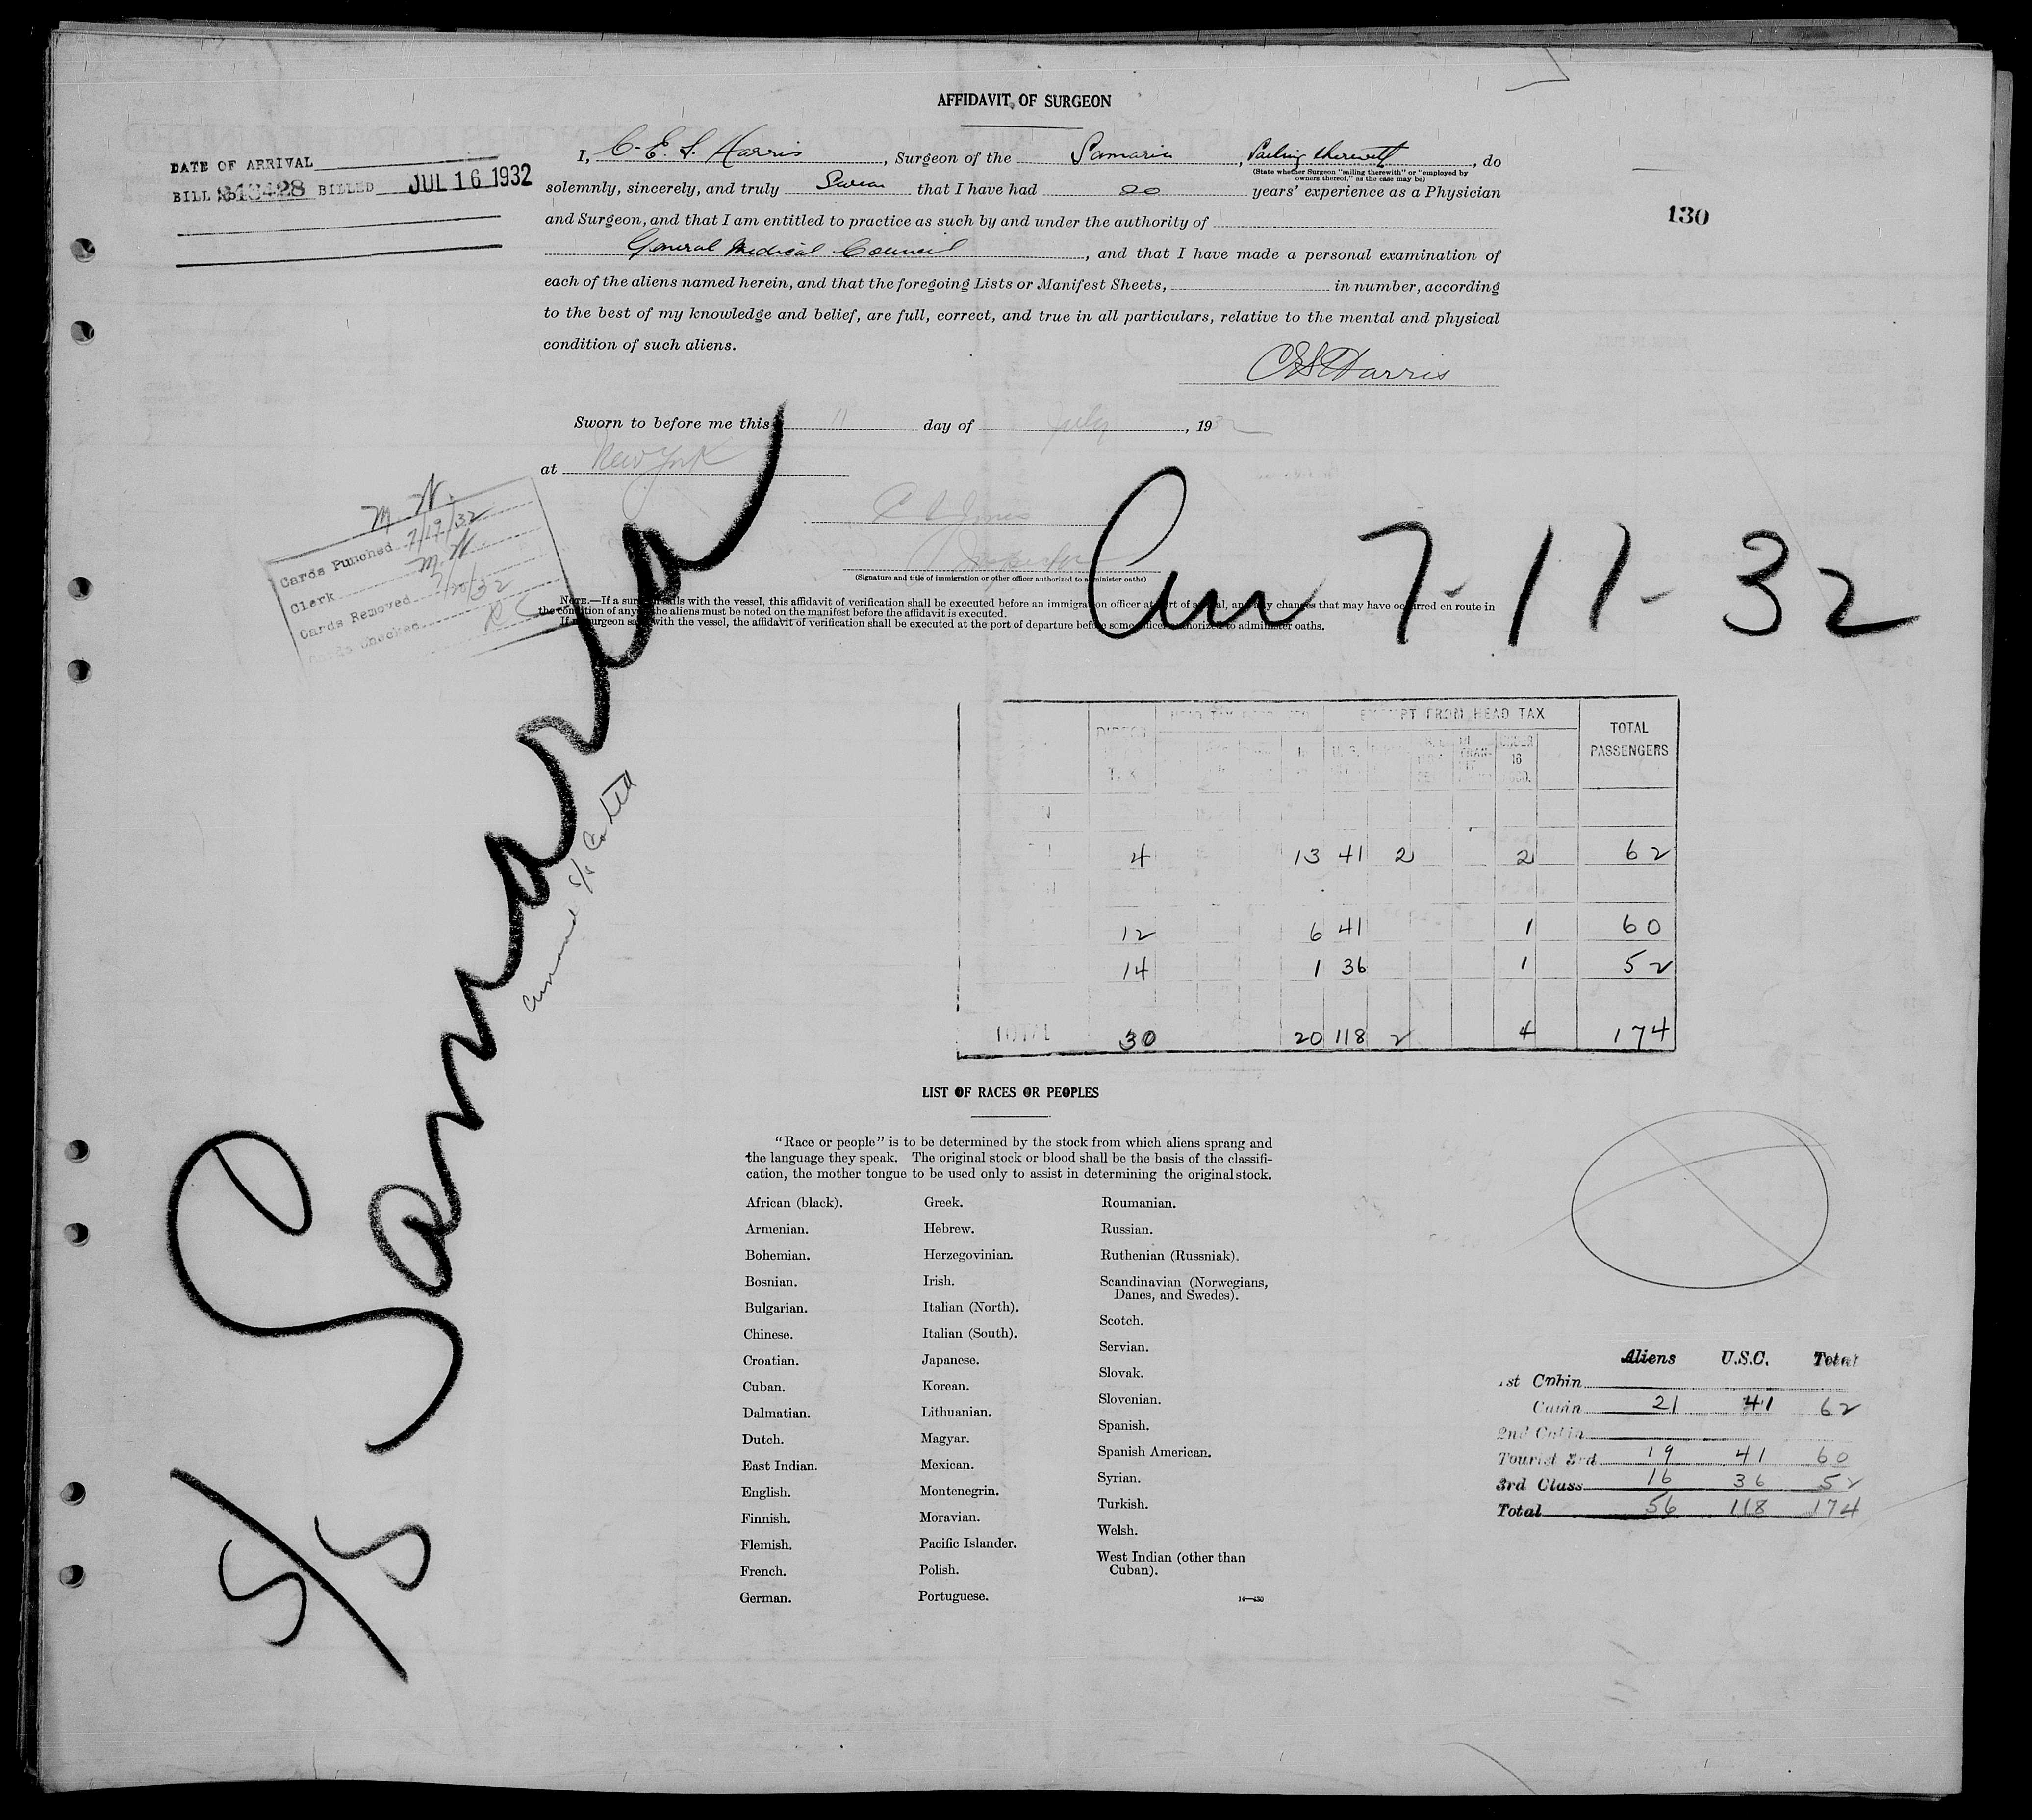 AFFIDAVIT OF SURGEON
DATE OF ARRIVAL
BILL BILLED JUL 16 1932
130
I, C. E. S. Harris, Surgeon of the Samaria, Sailing therewith, do
(State whether Surgeon "sailing therewith" or "employed by
owners thereof," as the case may be)
solemnly, sincerely, and truly Swear that I have had 20 years' experience as a Physician
and Surgeon, and that I am entitled to practice as such by and under the authority of
General Medical Council, and that I have made a personal examination of
each of the aliens named herein, and that the foregoing Lists or Manifest Sheets, in number, according
to the best of my knowledge and belief, are full, correct, and true in all particulars, relative to the mental and physical
condition of such aliens.
CES Harris
Sworn to before me this 11 day of July, 1932
at New York
Jones
Inspector
(Signature and title of immigration or other officer authorized to administer oaths)
M. N.
Cards Punched 7/19/32
Clerk M. N.
Cards Removed 7/20/32
Cards Checked
Arr 7-11-32
NOTE.—If a surgeon sails with the vessel, this affidavit of verification shall be executed before an immigration officer at port of arrival, and any changes that may have occurred en route in
the condition of any of the aliens must be noted on the manifest before the affidavit is executed.
If no surgeon sails with the vessel, the affidavit of verification shall be executed at the port of departure before some officer authorized to administer oaths.
S/S Samaria
Cunard S/S Co Ltd
EXEMPT FROM HEAD TAX TOTAL
PASSENGERS
DIRECT
TAX
UNDER
16
4 13 41 2 2 62
12 6 41 1 60
14 1 36 1 52
TOTAL 30 20 118 2 4 174
LIST OF RACES OR PEOPLES
"Race or people" is to be determined by the stock from which aliens sprang and
the language they speak. The original stock or blood shall be the basis of the classifi-
cation, the mother tongue to be used only to assist in determining the original stock.
African (black).
Armenian.
Bohemian.
Bosnian.
Bulgarian.
Chinese.
Croatian.
Cuban.
Dalmatian.
Dutch.
East Indian.
English.
Finnish.
Flemish.
French.
German.
Greek.
Hebrew.
Herzegovinian.
Irish.
Italian (North).
Italian (South).
Japanese.
Korean.
Lithuanian.
Magyar.
Mexican.
Montenegrin.
Moravian.
Pacific Islander.
Polish.
Portuguese.
Roumanian.
Russian.
Ruthenian (Russniak).
Scandinavian (Norwegians,
Danes, and Swedes).
Scotch.
Servian.
Slovak.
Slovenian.
Spanish.
Spanish American.
Syrian.
Turkish.
Welsh.
West Indian (other than
Cuban).
14—430
Aliens U.S.C. Total
1st Cabin
Cabin 21 41 62
2nd Cabin
Tourist 3rd 19 41 60
3rd Class 16 36 52
Total 56 118 174